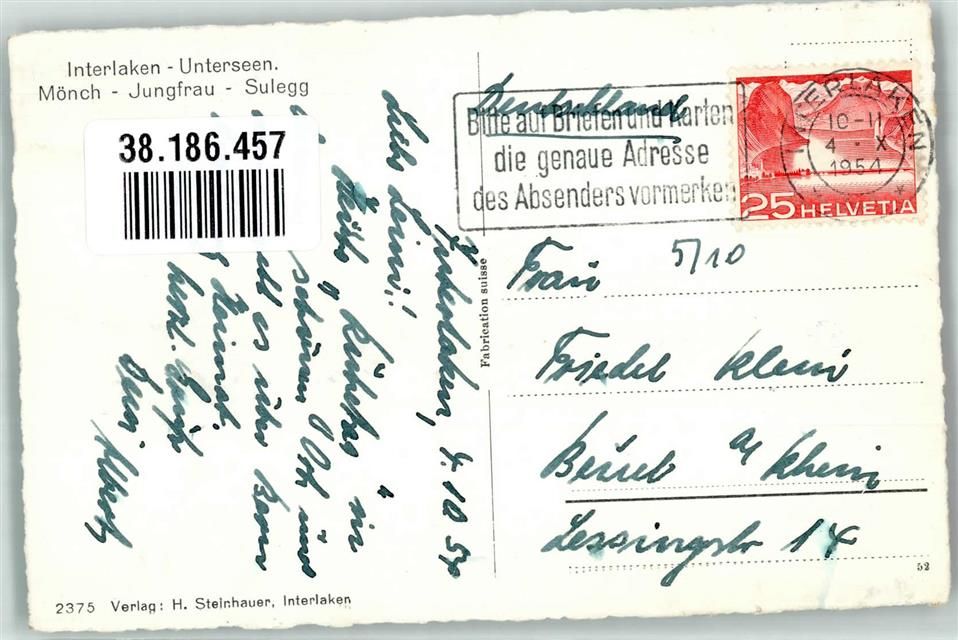 Interlaken - Unterseen.
Mönch - Jungfrau - Sulegg
38.186.457
Deutschland
Bitte auf Briefen und Karten
die genaue Adresse
des Absenders vormerken
INTERLAKEN
10-11
4. X
1954
25 HELVETIA
5/10
Interlaken, 4.10.54
Liebe
in
schönen Ort und
es über Bern
Heimat.
herzl. Grüße
Dein Albert
Fabrication suisse
Frau
Friedel Klein
Beuel a/ Rhein
Lessingstr 14
52
2375 Verlag: H. Steinhauer, Interlaken